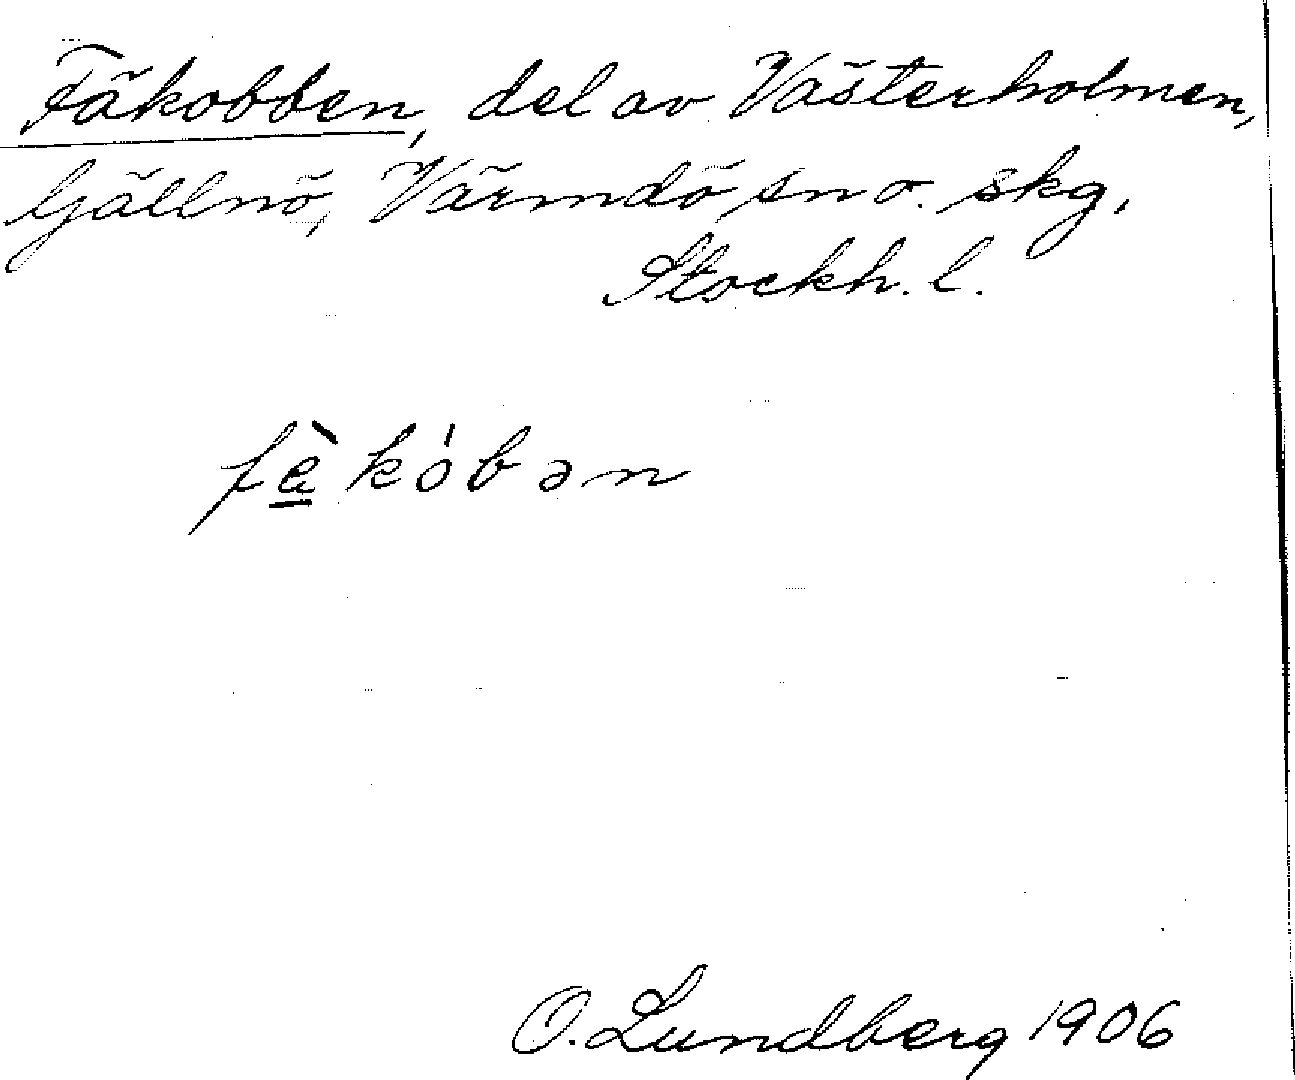 Fäkobben, del av Västerholmen,
Gällnö, Värmdö sn o. skg,
Stockh. l.
fὲ̲kóbən
O. Lundberg 1906